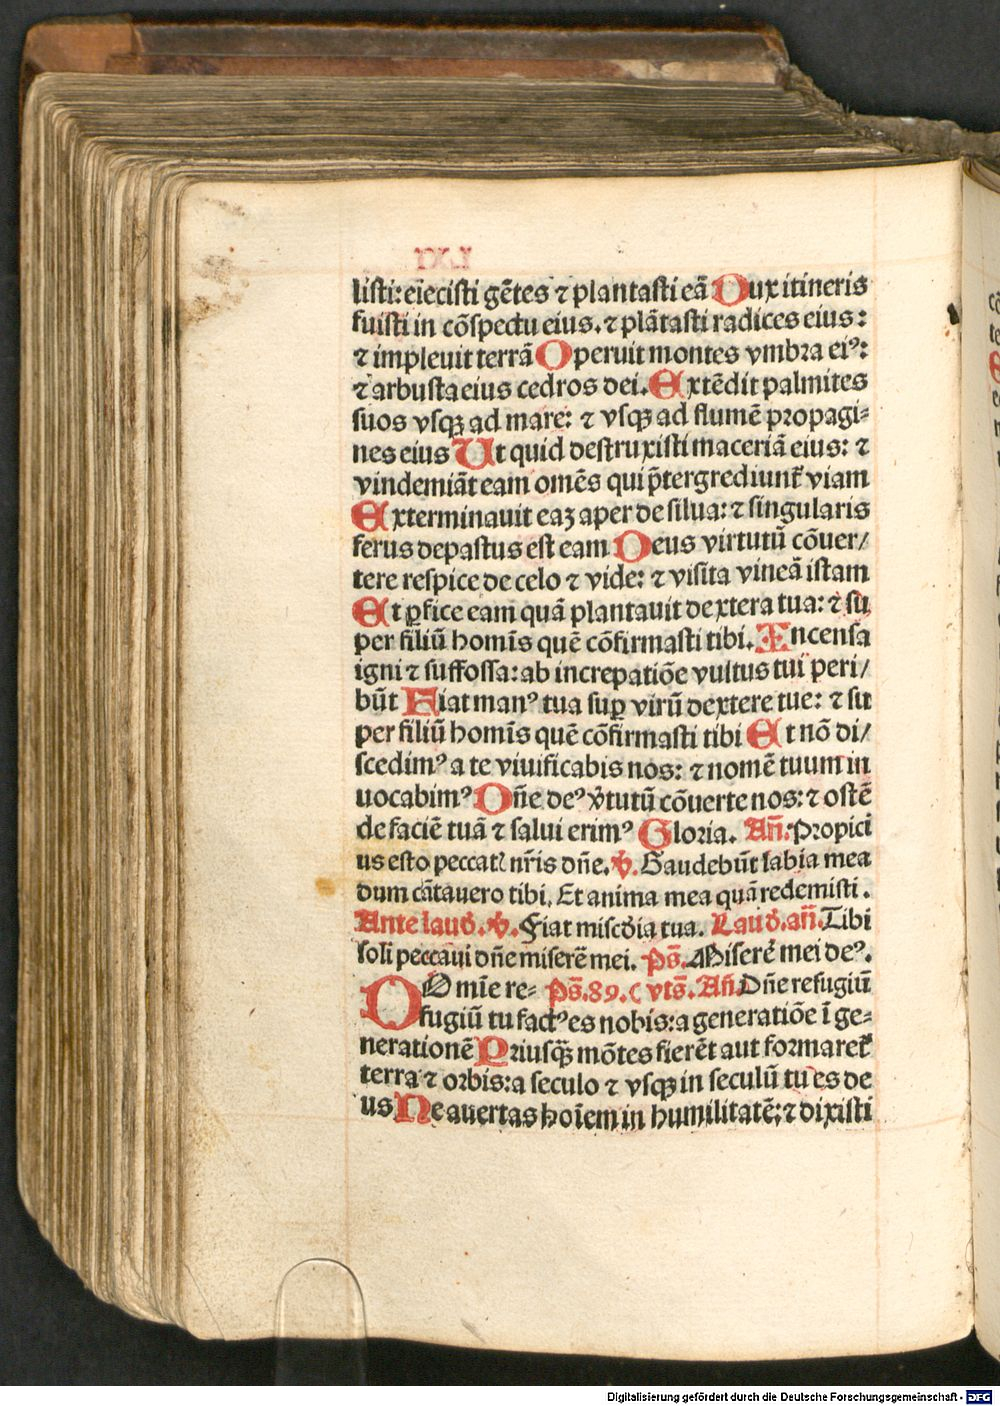 listi: eiecisti gētes ⁊ plantasti eā Dux itineris
fuisti in cōspectu eius. ⁊ plātasti radices eius:
⁊ impleuit terrā Operuit montes vmbra eiꝰ:
⁊ arbusta eius cedros dei. Extēdit palmites
suos vsqꝫ ad mare: ⁊ vsqꝫ ad flumē propagi⸗
nes eius Ut quid destruxisti maceriā eius: ⁊
vindemiāt eam omēs qui p̄tergrediunt᷑ viam
Exterminauit eaꝫ aper de silua: ⁊ singularis
ferus depastus est eam Deus virtutū cōuer/
tere respice de celo ⁊ vide: ⁊ visita vineā istam
Et ꝑfice eam quā plantauit dextera tua: ⁊ su
per filiū homīs quē cōfirmasti tibi. Incensa
igni ⁊ suffossa: ab increpatiōe vultus tui peri/
būt Fiat manꝰ tua suꝑ virū dextere tue: ⁊ su
per filiū homīs quē cōfirmasti tibi Et nō di/
scedimꝰ a te viuificabis nos: ⁊ nomē tuum in
uocabimꝰ Dn̄e deꝰ v̓tutū cōuerte nos: ⁊ ostē
de faciē tuā ⁊ salui erimꝰ Gloria. Añ. Propici
us esto peccatꝭ nr̄is dn̄e. ꝟ. Gaudebūt labia mea
dum cātauero tibi. Et anima mea quā redemisti.
Ante laud̓. ꝟ. Fiat misc̓dia tua. Laud̓. añ. Tibi
soli peccaui dn̄e miserē mei. Ps̄. Miserē mei deꝰ.
DOmīe re⸗ Ps̄. 89. C vts̄. Añ. Dn̄e refugiū
fugiū tu factꝰ es nobis: a generatiōe ī ge⸗
nerationē Priusqꝫ̄ mōtes fierēt aut formaret᷑
terra ⁊ orbis: a seculo ⁊ vsqꝫ in seculū tu es de
us Ne auertas hoīem in humilitatē: ⁊ dixisti
Digitalisierung gefördert durch die Deutsche Forschungsgemeinschaft - DFG